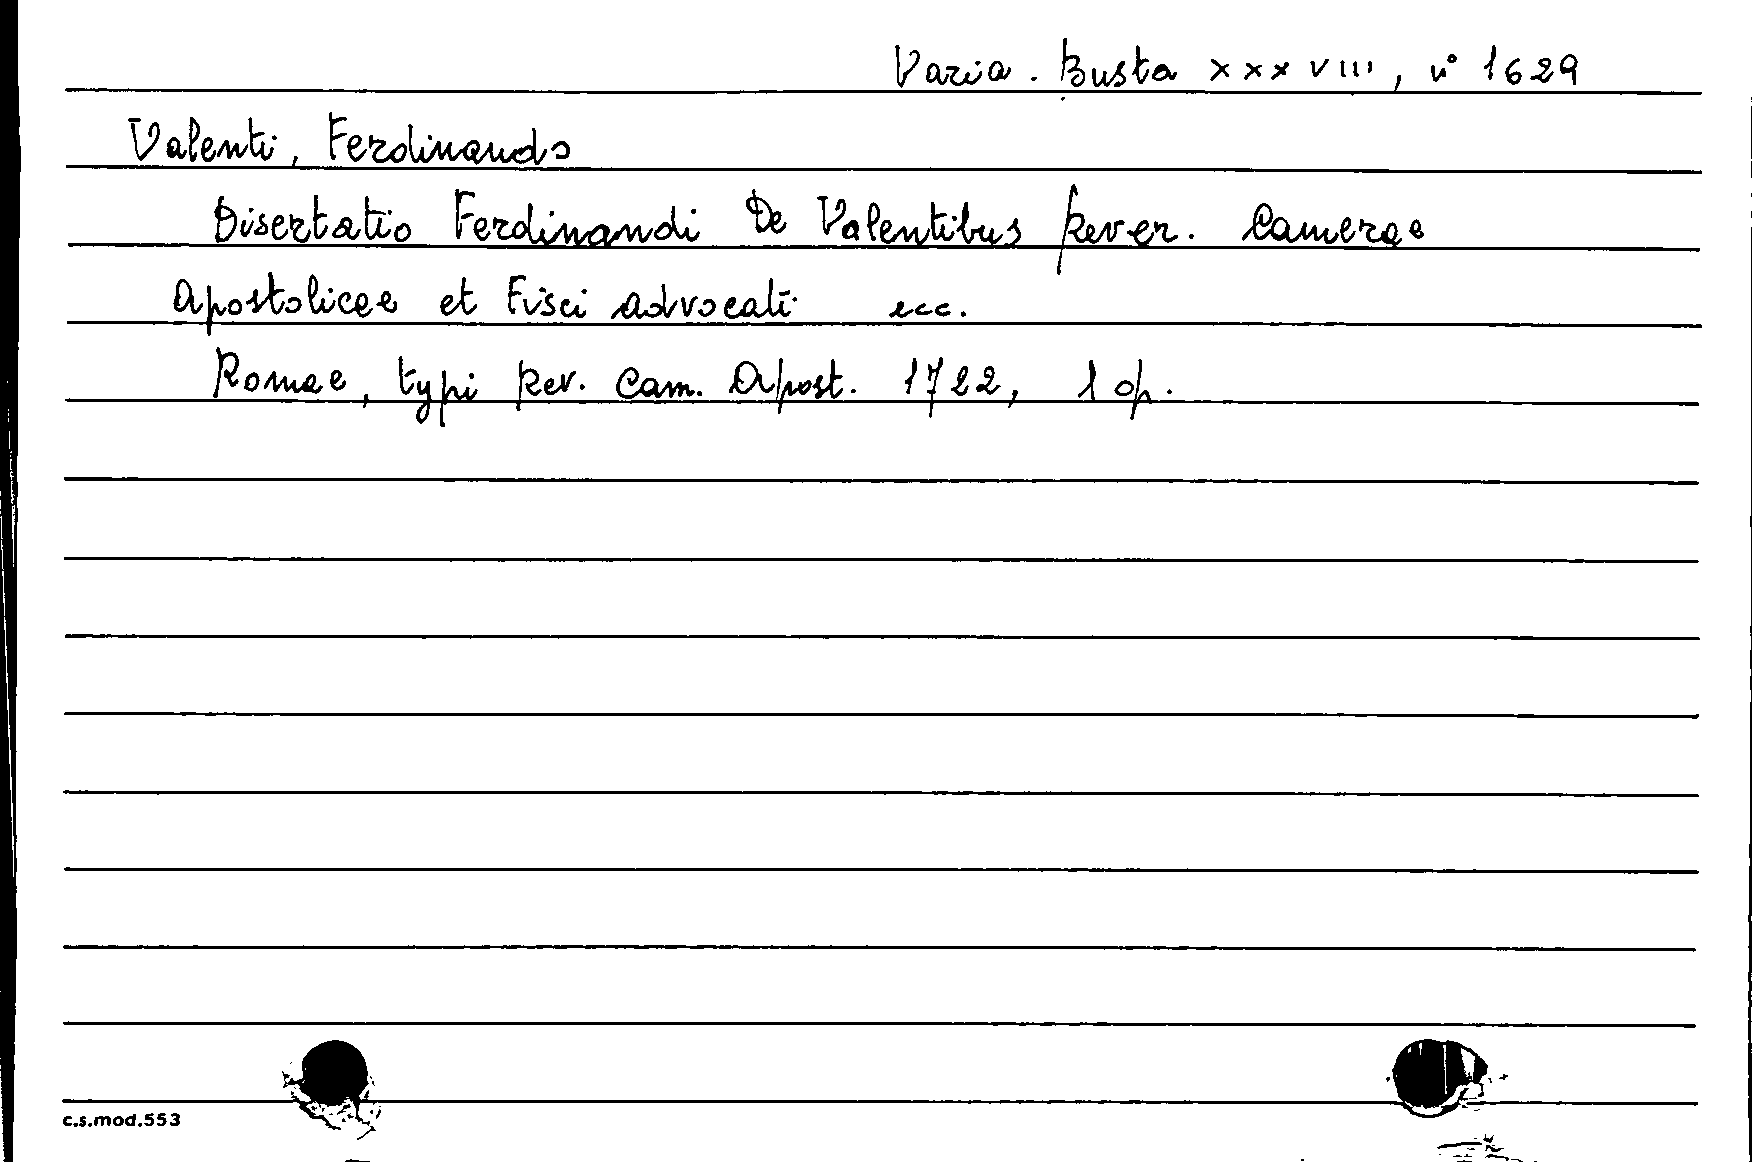 Varia. Busta XXXVIII, n° 1629
Valenti, Ferdinando
Disertatio Ferdinandi De Valentibus Rever. Camerae
Apostolicae et Fisci advocati ecc.
Romae, typi Rev. Cam. Apost. 1722, 1 op.
c.s.mod.553